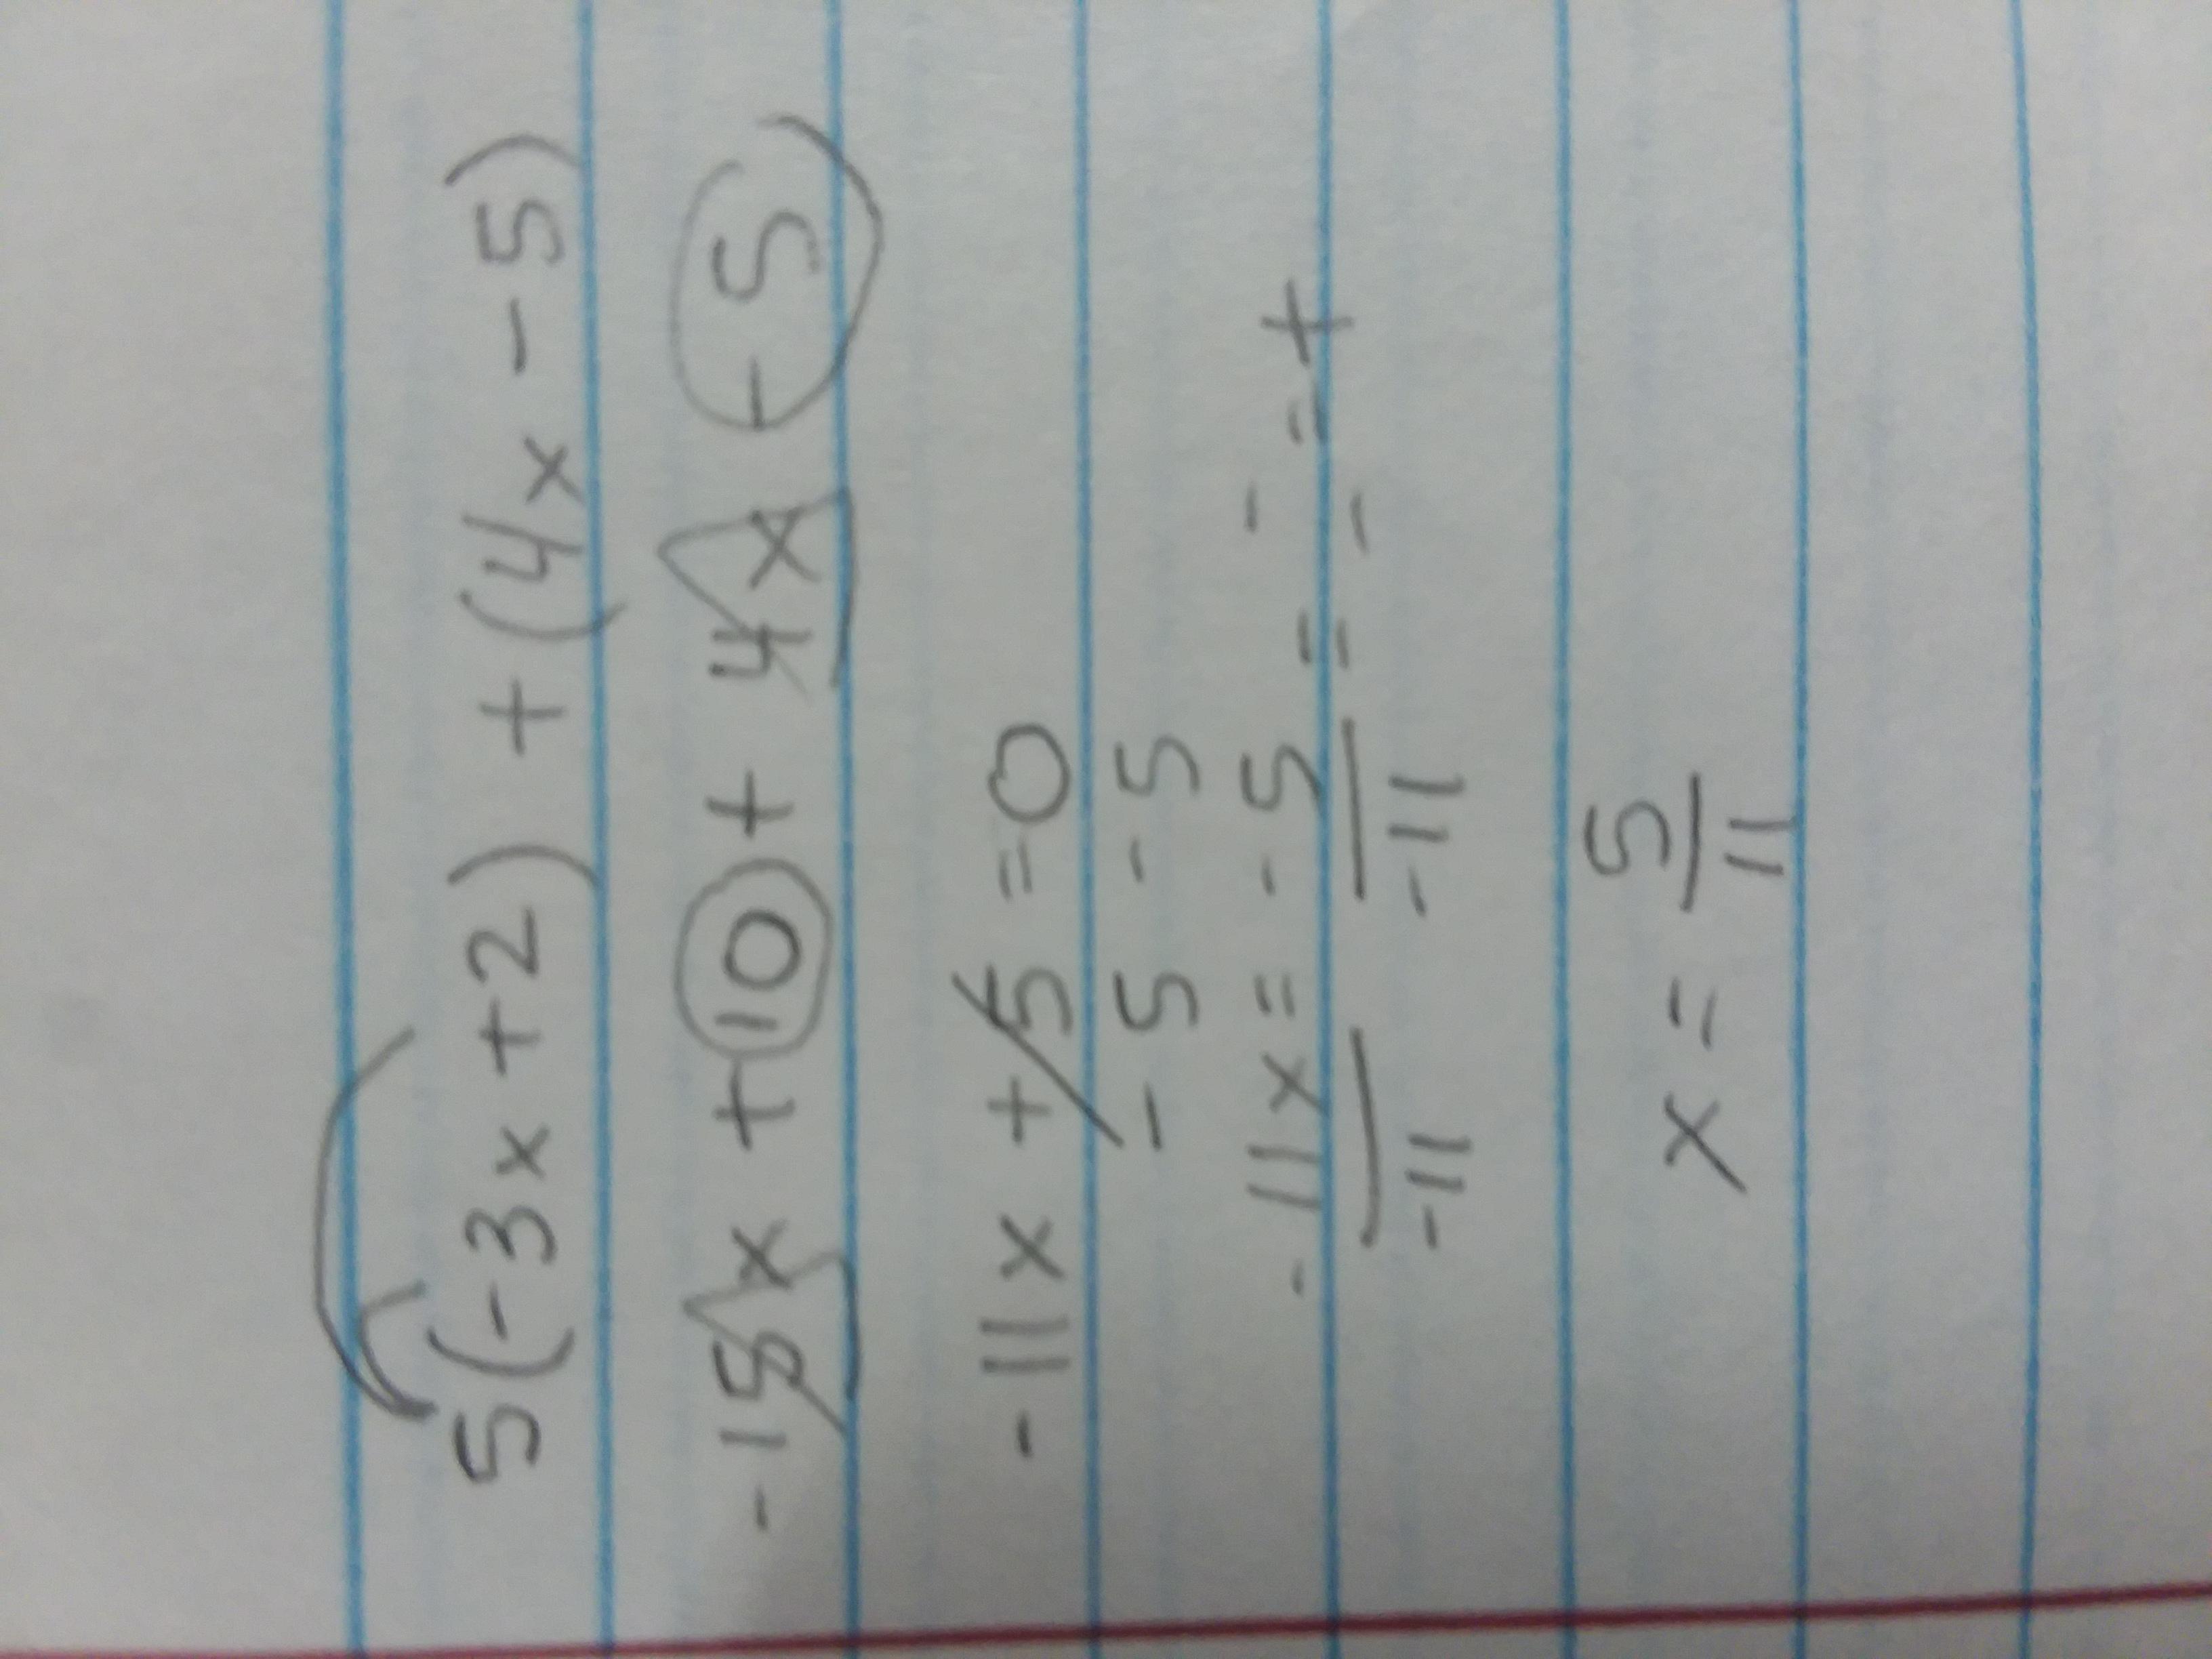 5(-3x +2) + (4x - 5)
-15x +10 + 4x - 5
-11x + 5 = 0
- 5 - 5
-11x = - 5 = - = +
-11 -11 -
x = 5/11